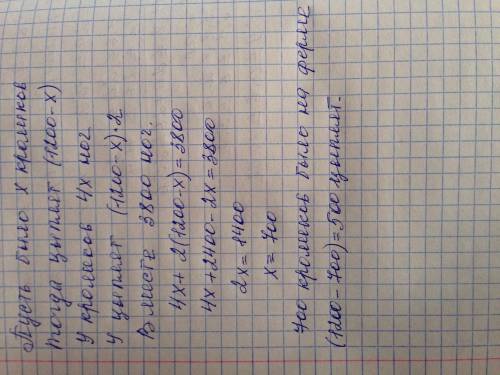 Пусть было x кроликов
тогда цыплят (1200-x)
У кроликов 4x ног
У цыплят (1200-x)·2
Вместе 3800 ног.
4x+2(1200-x)=3800
4x+2400-2x=3800
2x=1400
x=700
700 кроликов было на ферме
(1200-700)=500 цыплят.